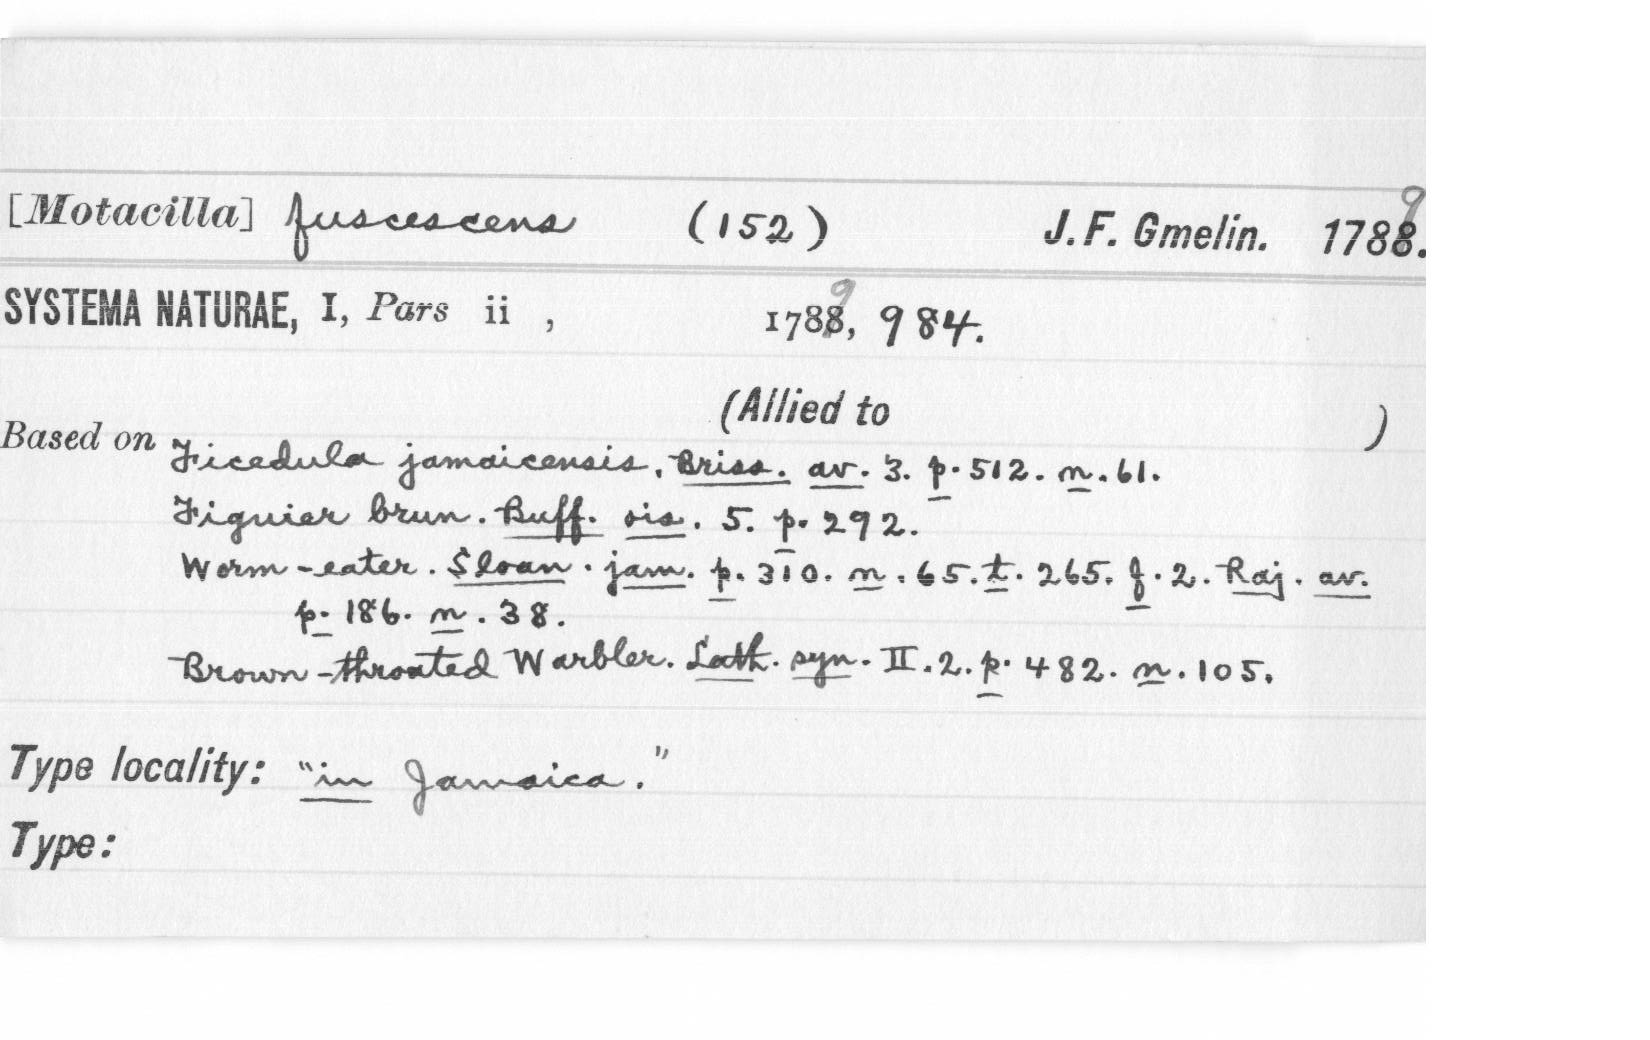 [Motacilla] fuscescens (152) J. F. Gmelin. 1788. 9
SYSTEMA NATURAE, I, Pars ii , 1788, 9 984.
(Allied to )
Based on Ficedula jamaicensis. Briss. av. 3. p. 512. n. 61.
Figuier brun. Buff. ois. 5. p. 292.
Worm-eater. Sloan. jam. p. 310. n. 65. t. 265. f. 2. Raj. av.
p. 186. n. 38.
Brown-throated Warbler. Lath. syn. II. 2. p. 482. n. 105.
Type locality: "in Jamaica."
Type: